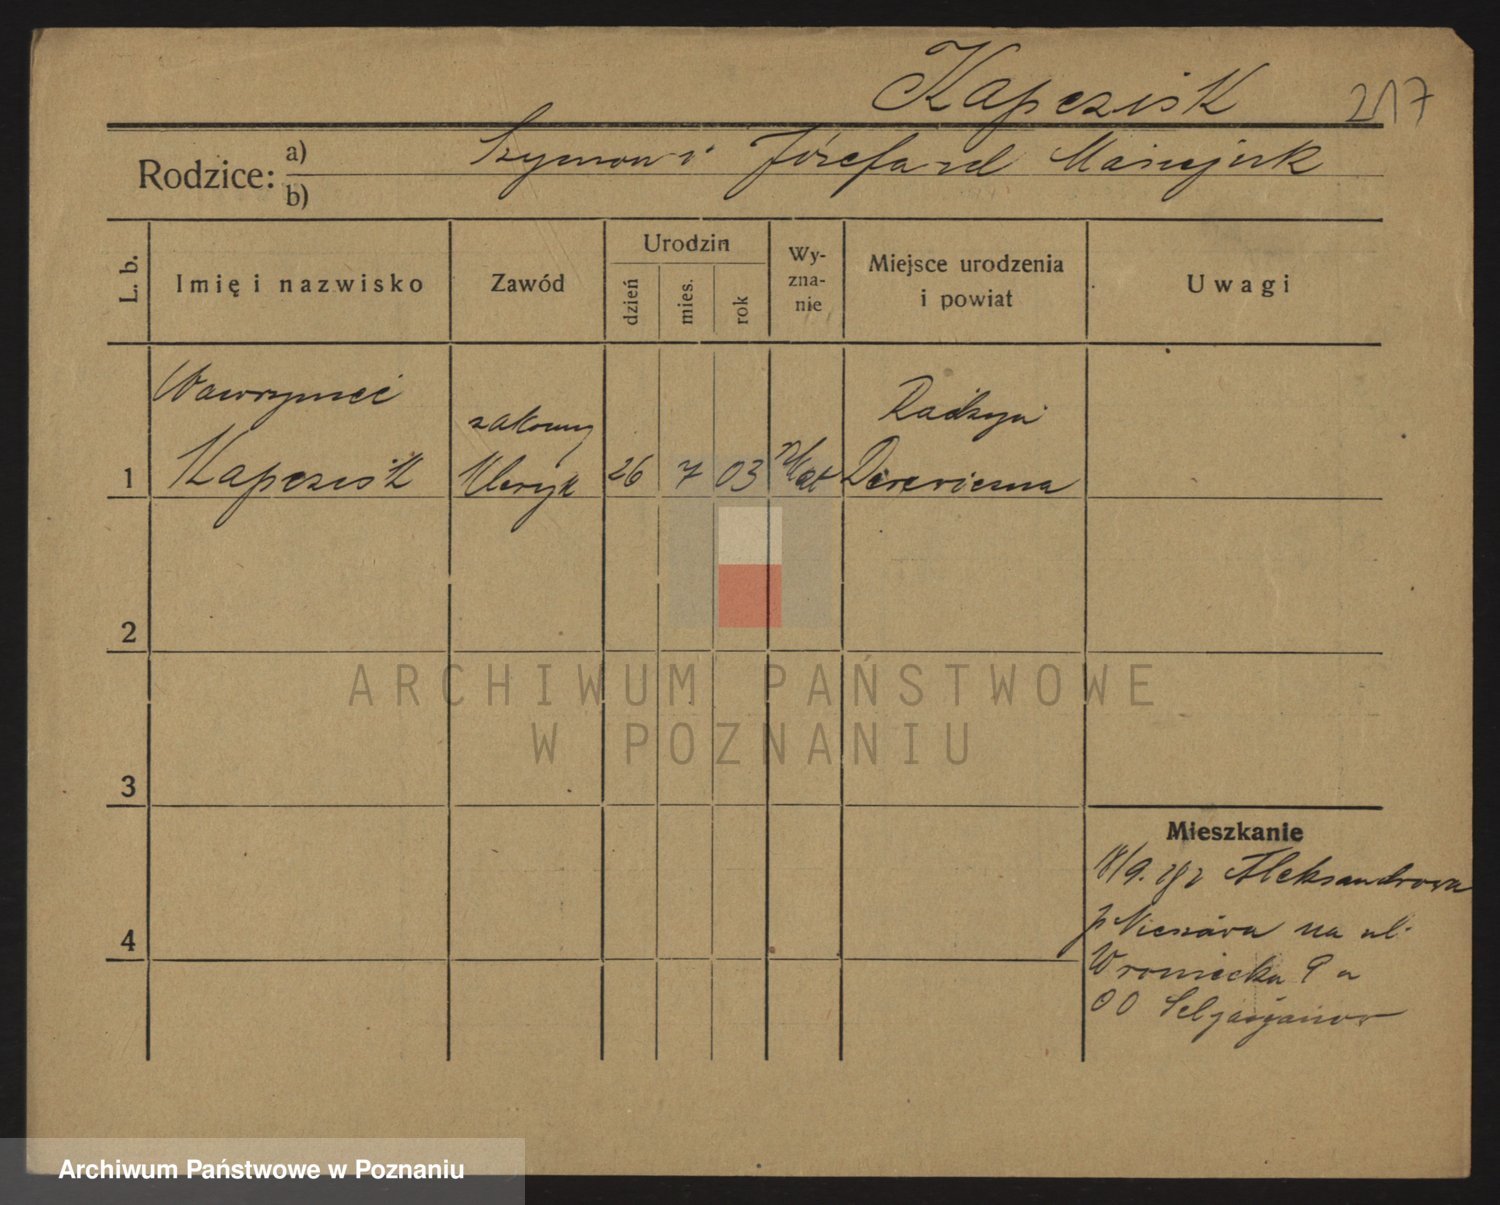 Kapczisk 217
Rodzice: a) b) Szymon i Józefa zd
L. b.
Imię i nazwisko
Zawód
Urodzin
dzień
mies.
rok
Wy-
zna-
nie
Miejsce urodzenia
i powiat
Uwagi
1
Wawrzyniec
zakonny
Kleryk
26
7
03
Derewiczna
2
3
4
Mieszkanie
18/9. Aleksandrowa
p Nieszawa na ul.
Wroniecka 9 u
OO
ARCHIWUM PAŃSTWOWE
W POZNANIU
Archiwum Państwowe w Poznaniu